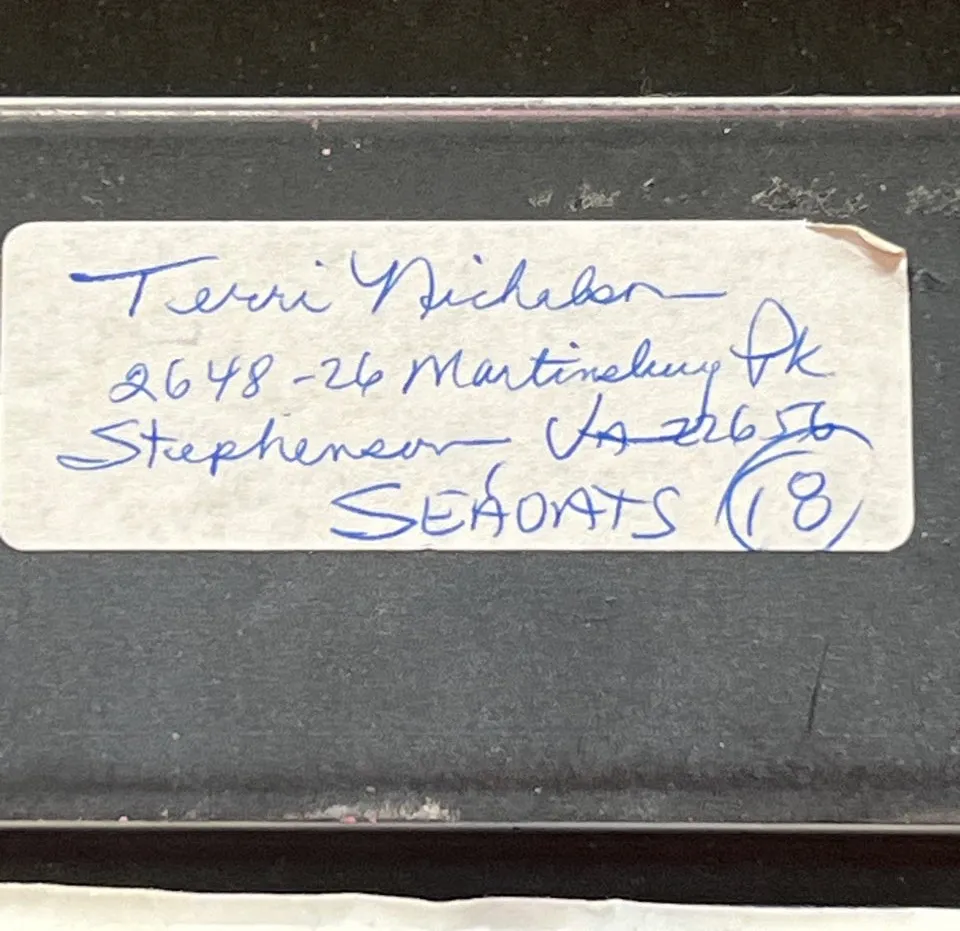 Terri Nicholson
2648-26 Martinsburg Pk
Stephenson VA 22656
SEAOATS 18